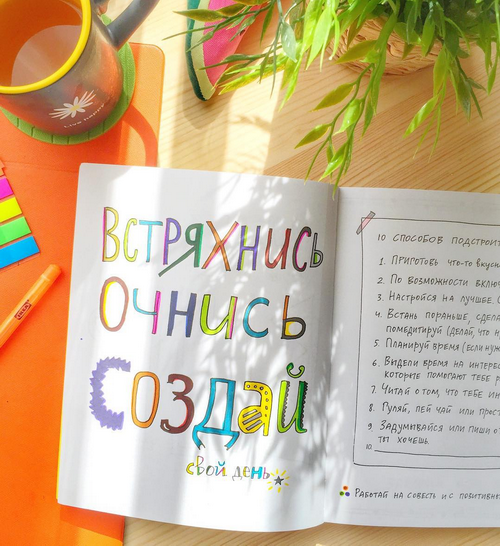 Live Happy
Встряхнись
Очнись
Создай
свой день
10 способов
1. Приготовь что-то
2. По возможности
3. Настройся на лучшее.
4. Встань пораньше,
помедитируй (делай, что
5. Планируй время (если
6. Выдели время на
которые помогают тебе
7. Читай о том, что тебе
8. Гуляй, пей чай или
9. Задумывайся или пиши о
ты хочешь.
10
Работай на совесть и с